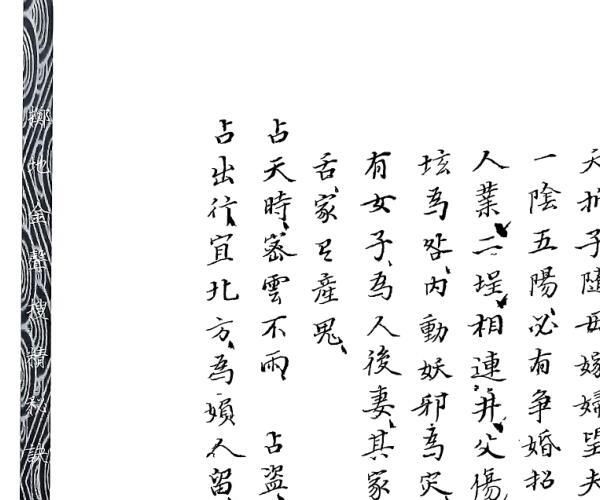 夫……子隨母嫁婦望夫
一陰五陽必有争婚招
人業二埕相連并父傷
坟為咎内動妖邪為灾
有女子為人後妻其家
舌家有產鬼
占天時密雲不雨 占盜
占出行宜北方為婦人留
擲地金聲搜精秘訣